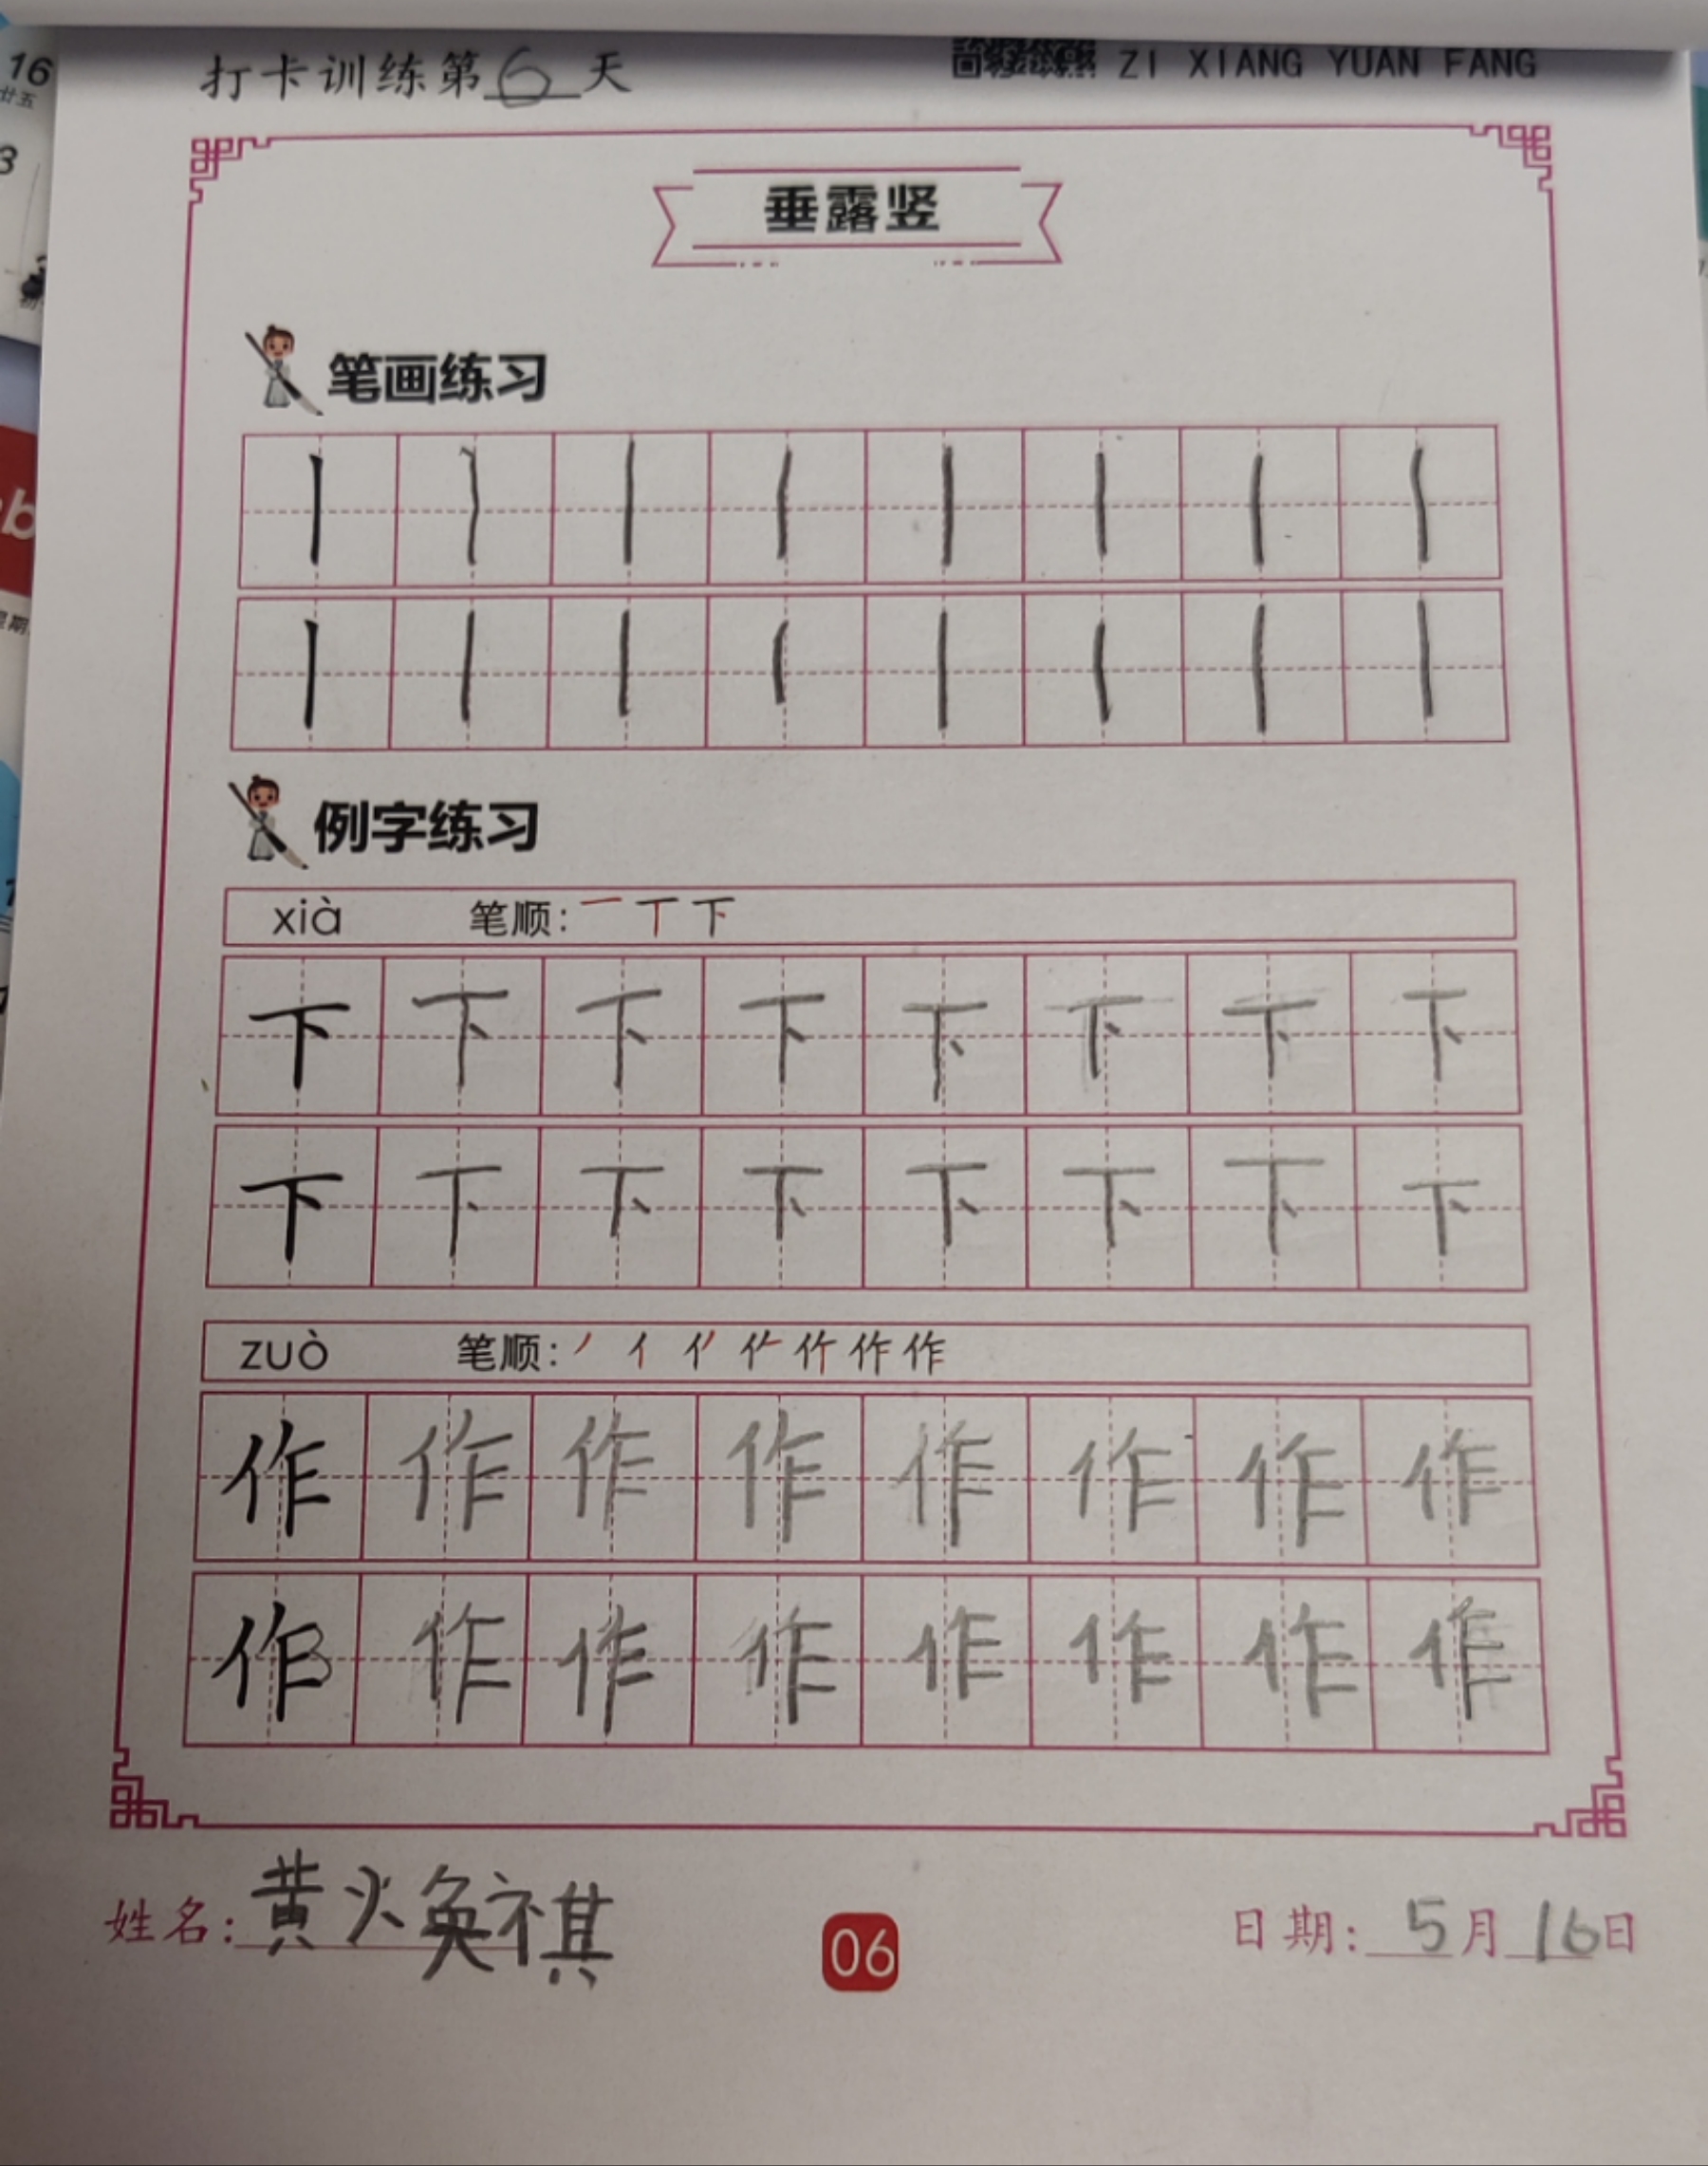 打卡训练第6天
ZI XIANG YUAN FANG
垂露竖
笔画练习
例字练习
xià 笔顺: 一 丅 下
下 下 下 下 下 下 下 下
下 下 下 下 下 下 下 下
zuò 笔顺: 丿 亻 作
作 作 作 作 作 作 作 作
作 作 作 作 作 作 作 作
姓名: 黄焕祺
06
日期: 5月16日
16
廿五
3